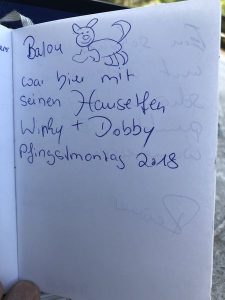 Balou
war hier mit
seinen Hauselfen
Winky + Dobby
Pfingstmontag 2018